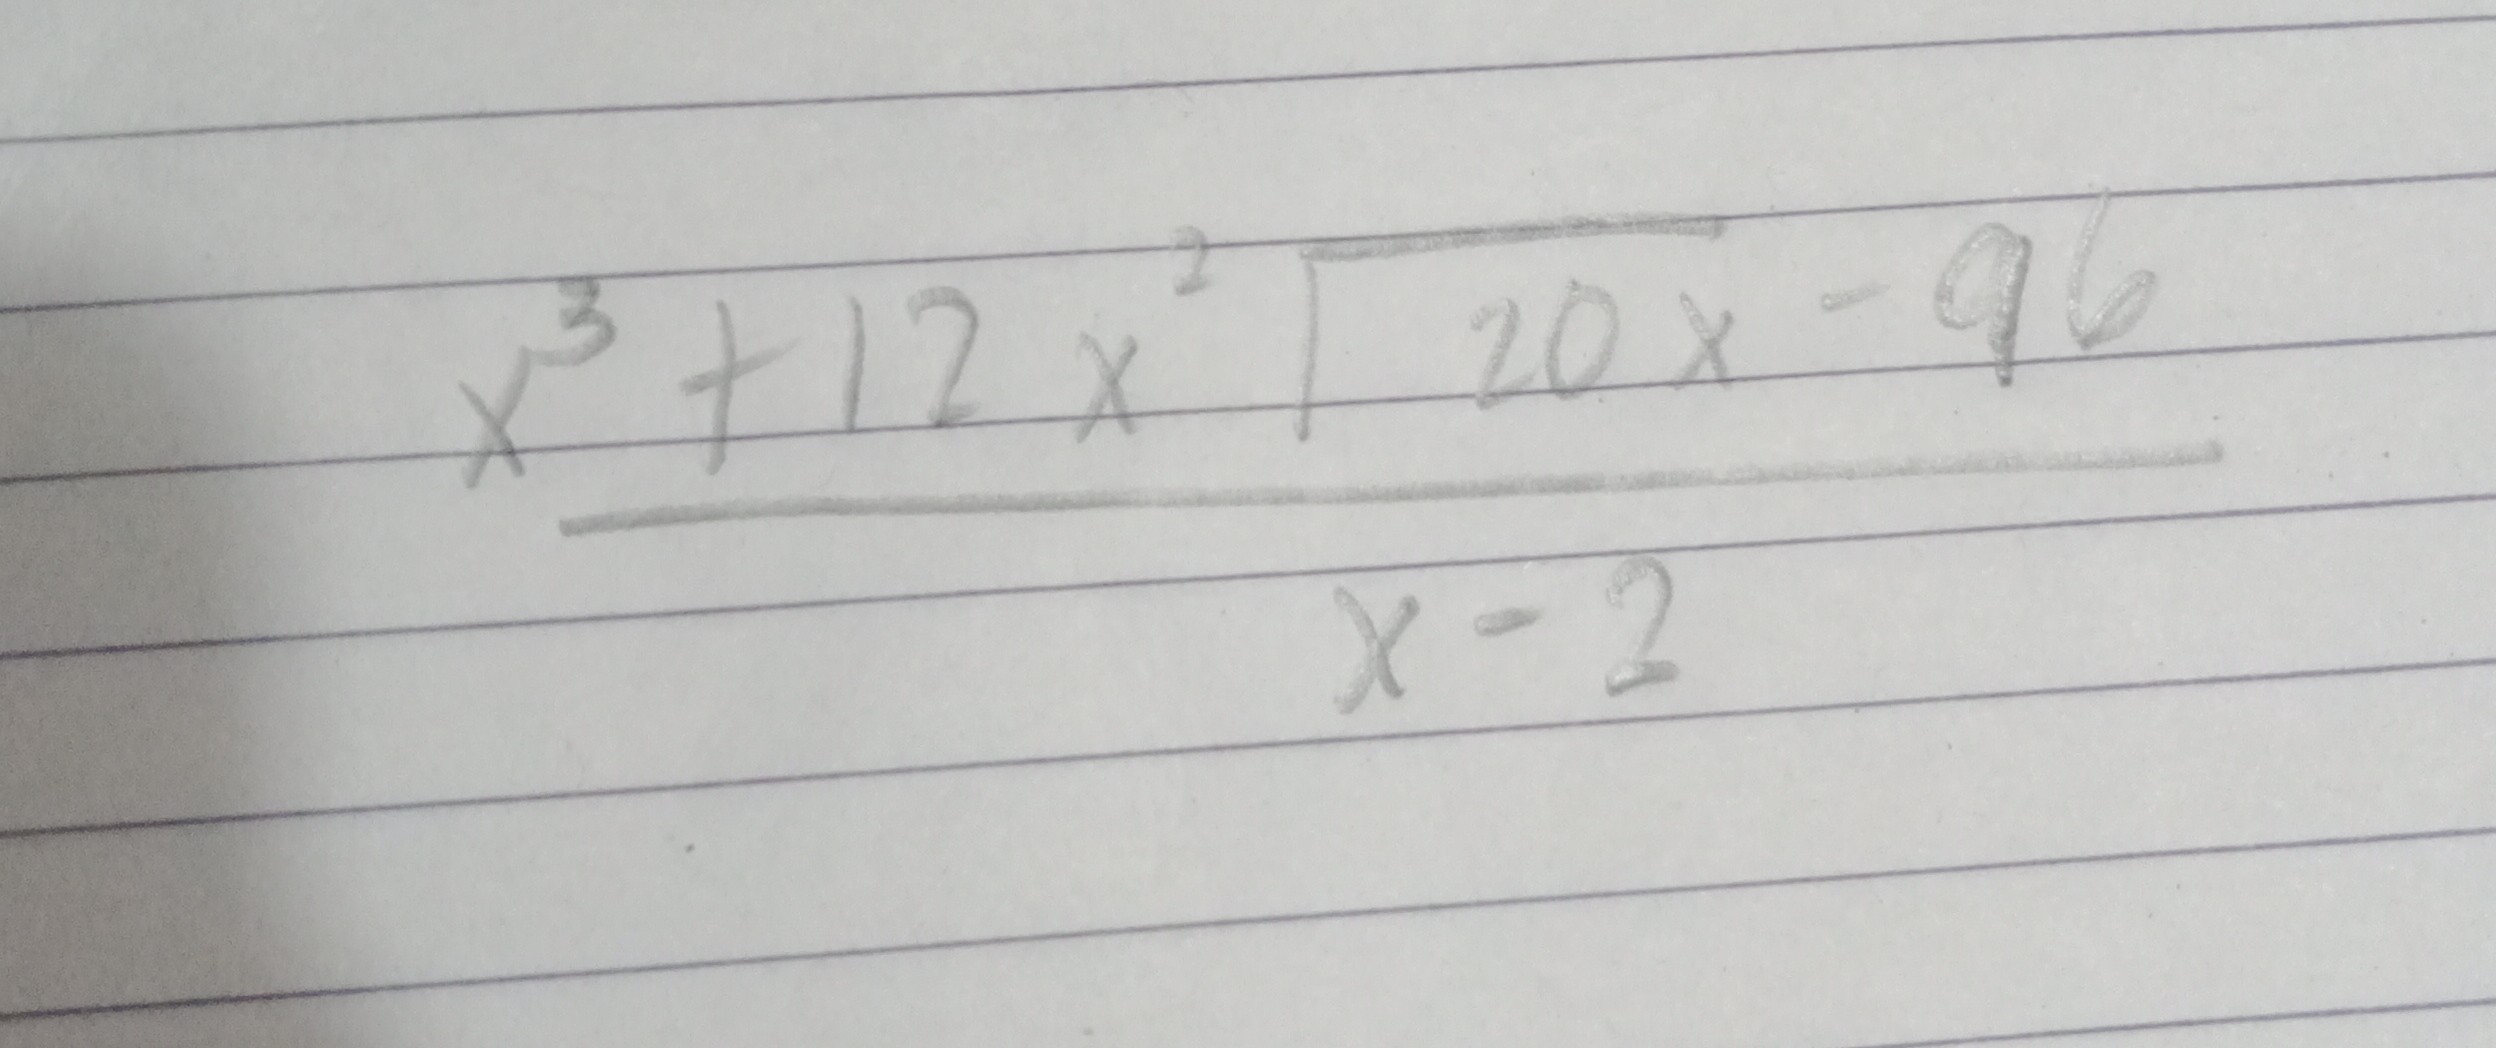 x³ + 12x² ⟌20x - 96
x - 2